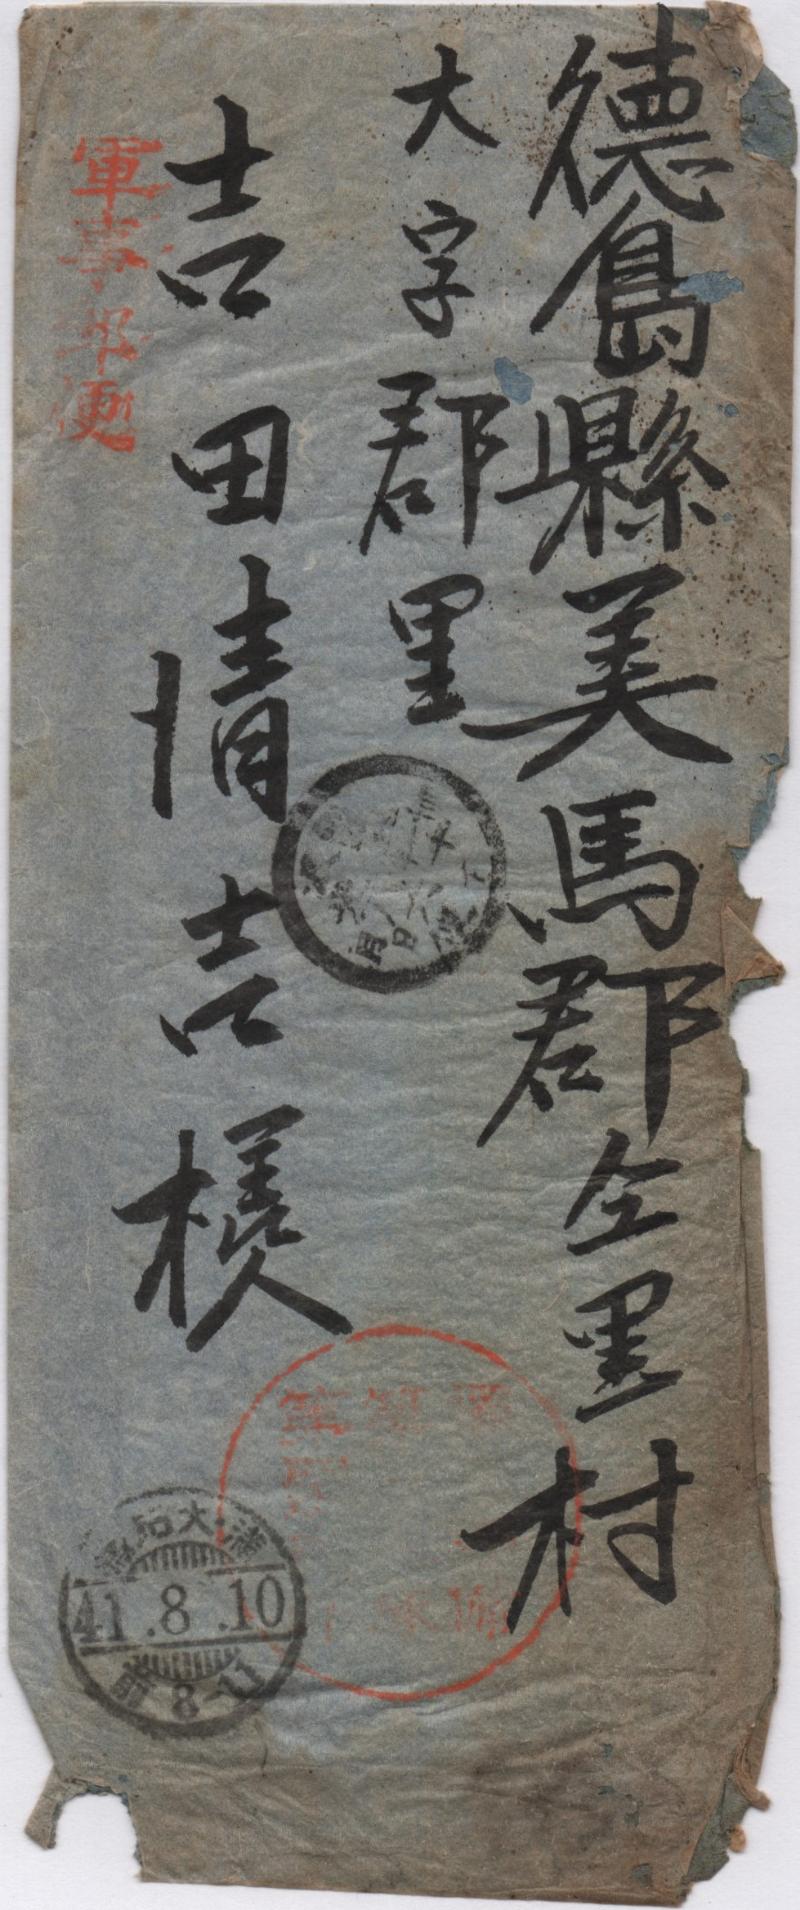 德島縣美馬郡仝里村
大字郡里
吉田情吉様
軍事郵便
41.8.10
前8-11